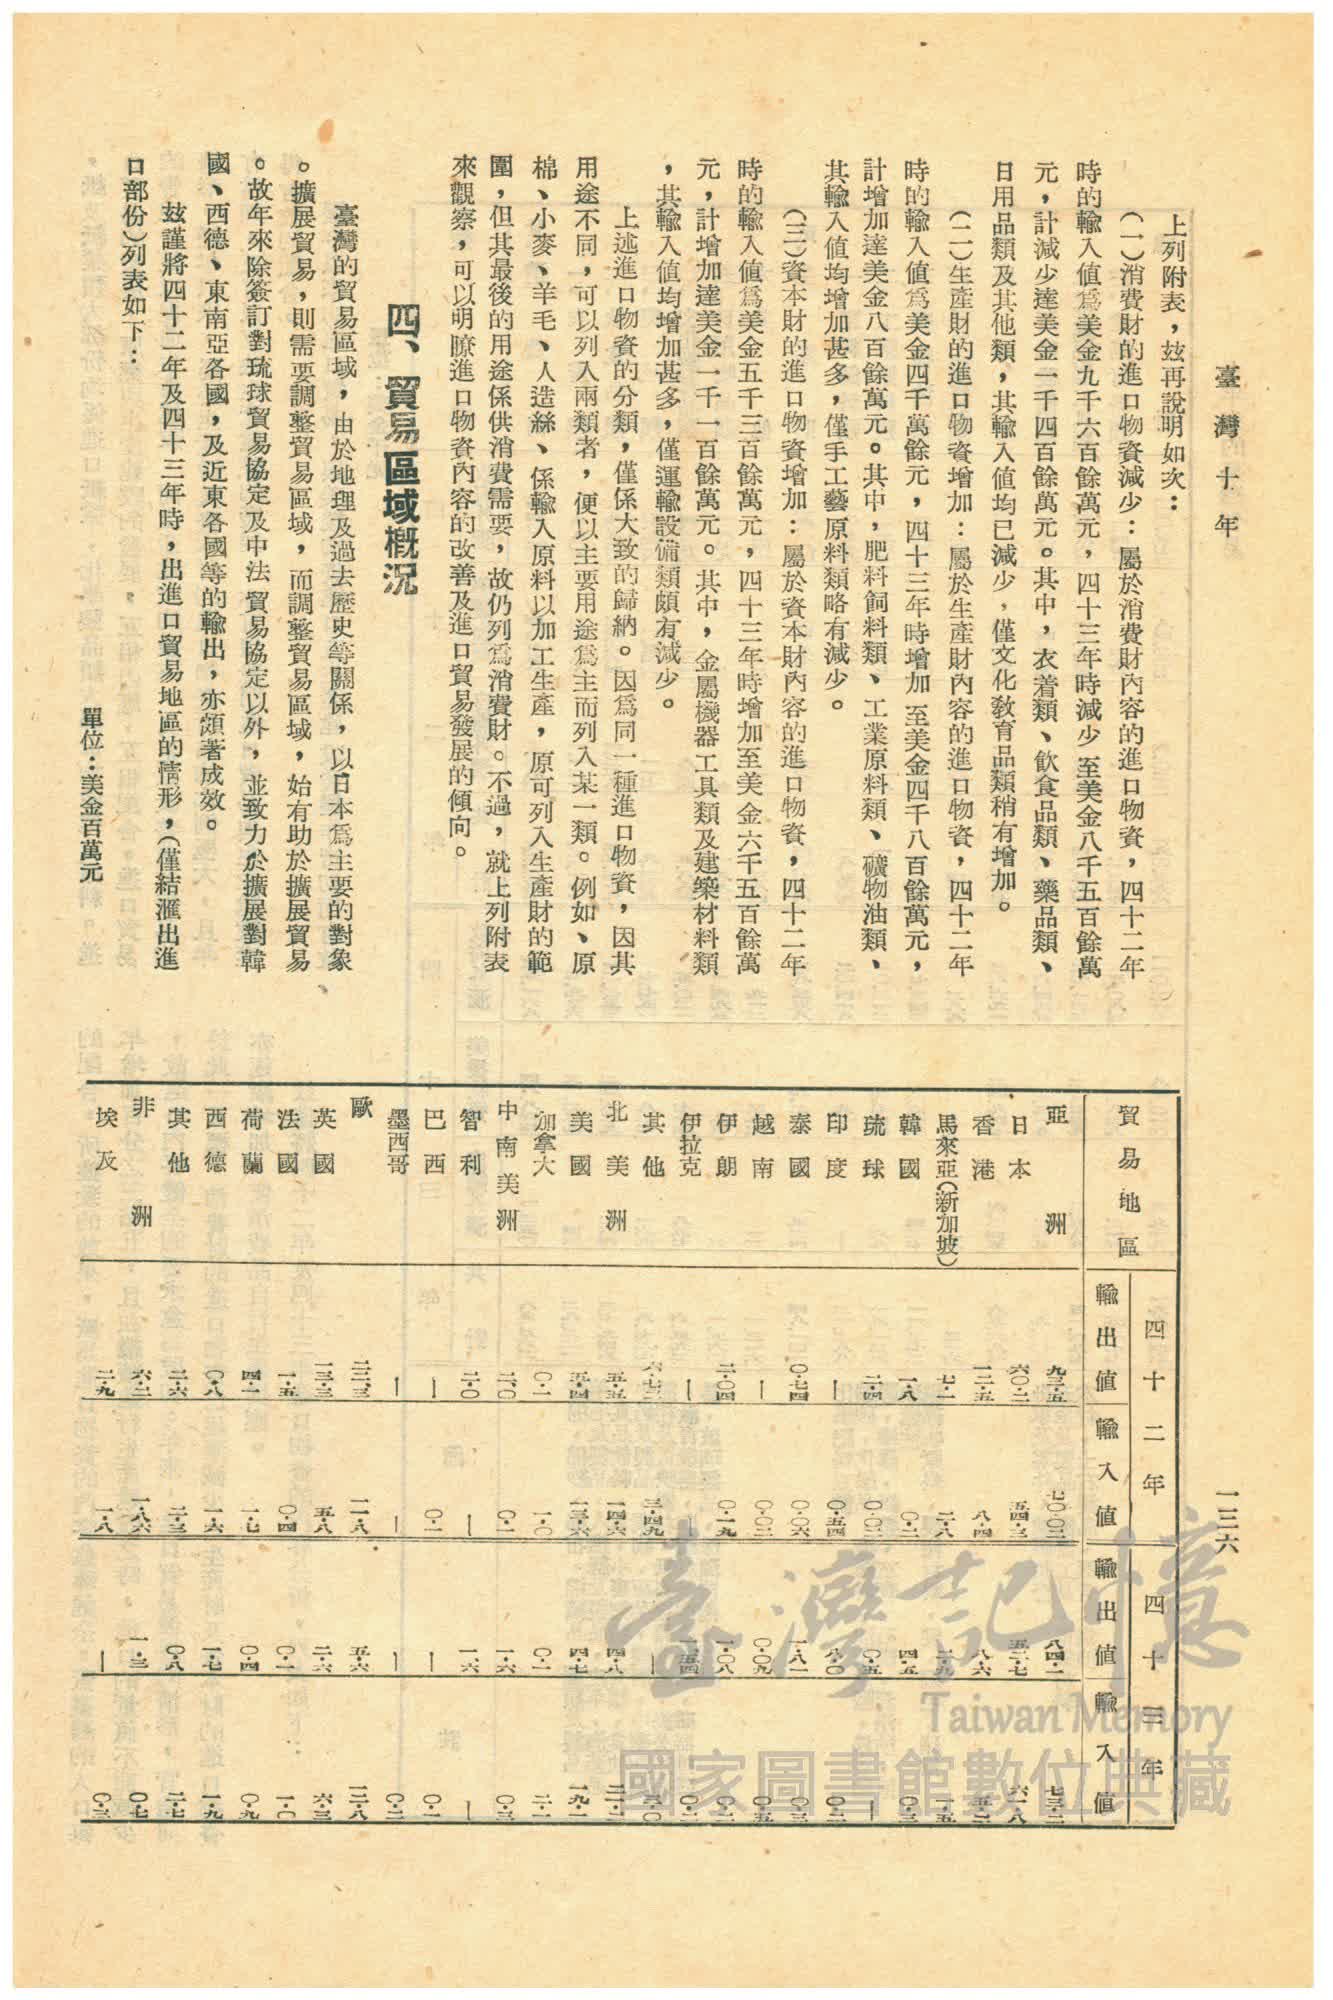 臺灣十年
一三六
上列附表，玆再說明如次：
（一）消費財的進口物資減少：屬於消費財內容的進口物資，四十二年
時的輸入值爲美金九千六百餘萬元，四十三年時減少至美金八千五百餘萬
元，計減少達美金一千四百餘萬元。其中，衣着類、飲食品類、藥品類、
日用品類及其他類，其輸入值均已減少，僅文化教育品類稍有增加。
（二）生產財的進口物資增加：屬於生產財內容的進口物資，四十二年
時的輸入值爲美金四千萬餘元，四十三年時增加至美金四千八百餘萬元，
計增加達美金八百餘萬元。其中，肥料飼料類、工業原料類、礦物油類、
其輸入值均增加甚多，僅手工藝原料類略有減少。
（三）資本財的進口物資增加：屬於資本財內容的進口物資，四十二年
時的輸入值爲美金五千三百餘萬元，四十三年時增加至美金六千五百餘萬
元，計增加達美金一千一百餘萬元。其中，金屬機器工具類及建築材料類
，其輸入值均增加甚多，僅運輸設備類頗有減少。
上述進口物資的分類，僅係大致的歸納。因爲同一種進口物資，因其
用途不同，可以列入兩類者，便以主要用途爲主而列入某一類。例如、原
棉、小麥、羊毛、人造絲、係輸入原料以加工生產，原可列入生產財的範
圍，但其最後的用途係供消費需要，故仍列爲消費財。不過，就上列附表
來觀察，可以明瞭進口物資內容的改善及進口貿易發展的傾向。
四、貿易區域概況
臺灣的貿易區域，由於地理及過去歷史等關係，以日本爲主要的對象
。擴展貿易，則需要調整貿易區域，而調整貿易區域，始有助於擴展貿易
。故年來除簽訂對琉球貿易協定及中法貿易協定以外，並致力於擴展對韓
國、西德、東南亞各國，及近東各國等的輸出，亦頗著成效。
玆謹將四十二年及四十三年時，出進口貿易地區的情形，（僅結滙出進
口部份）列表如下：
單位：美金百萬元
貿易地區
四十二年
四十三年
輸出值
輸入值
輸出值
輸入值
亞洲 九三・五 七〇・〇三 八四・一 七三・二
日本 六〇・二 五四・三 五二・七 六一・八
香港 一二・五 八・四 八・六 五・二
馬來亞（新加坡） 七・一 二・八 二・九 一・五
韓國 一・八 〇・二 四・五 〇・三
琉球 二・四 〇・〇三 〇・五 ｜
印度 ｜ 〇・五四 八・〇 〇・二
泰國 〇・七四 〇・〇六 一・八二 〇・三
越南 ｜ 〇・〇二 〇・〇九 〇・五
伊朗 二・〇四 〇・一九 一・〇八 〇・二
伊拉克 ｜ ｜ 一・五四 〇・一
其他 六・七二 三・四九 ｜
北美洲 五・五 一四・六 四・八 二一・二
美國 五・四 一三・六 四・七 一九・一
加拿大 〇・一 一・〇 〇・一 二・一
中南美洲 二・〇 〇・一 一・六 〇・三
智利 二・〇 ｜ 一・六 ｜
巴西 ｜ 〇・一 ｜ 〇・一
墨西哥 ｜ ｜ ｜ 〇・二
歐 二二・三 一一・八 五・六 一二・八
英國 一三・三 五・八 二・六 六・三
法國 一・五 〇・四 〇・一 一・〇
荷蘭 四・一 一・七 〇・四 〇・九
西德 〇・八 一・六 一・七 一・九
其他 二・六 二・三 〇・八 二・七
非洲 六・二 一・八六 一・三 〇・七
埃及 二・九 一・八 ｜ 〇・三
臺灣記憶
Taiwan Memory
國家圖書館數位典藏